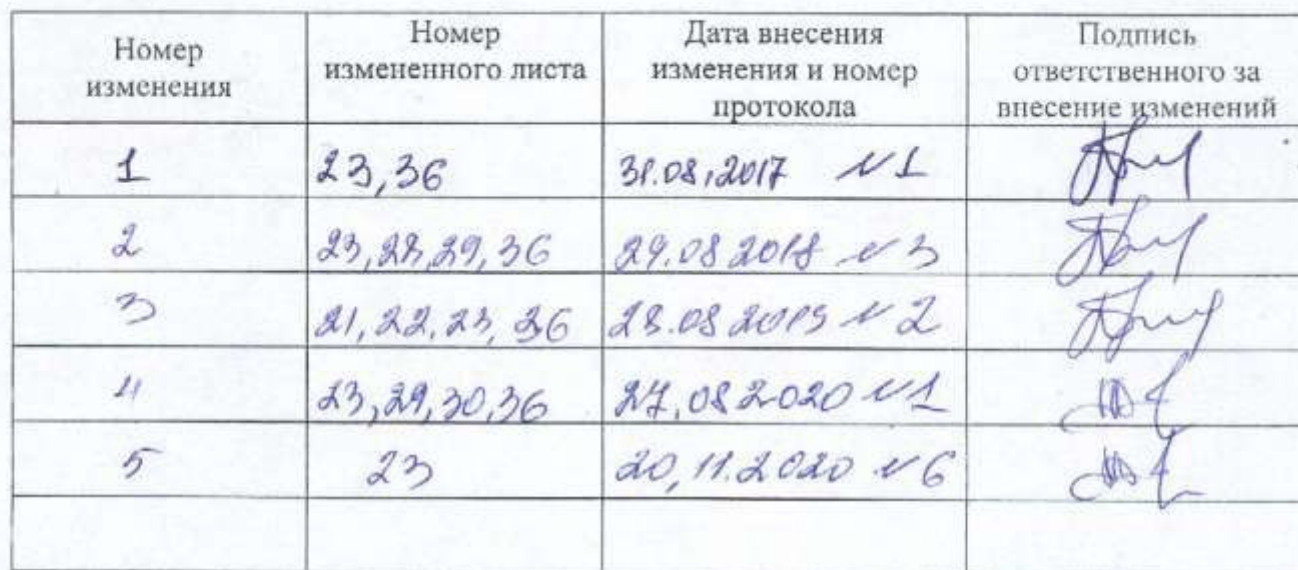 Номер изменения
Номер измененного листа
Дата внесения изменения и номер протокола
Подпись ответственного за внесение изменений
1 23,36 31.08.2017 №1
2 23,28,29,36 29.08.2018 №3
3 21,22,23,36 28.08.2019 №2
4 23,29,30,36 27.08.2020 №1
5 23 20.11.2020 №6